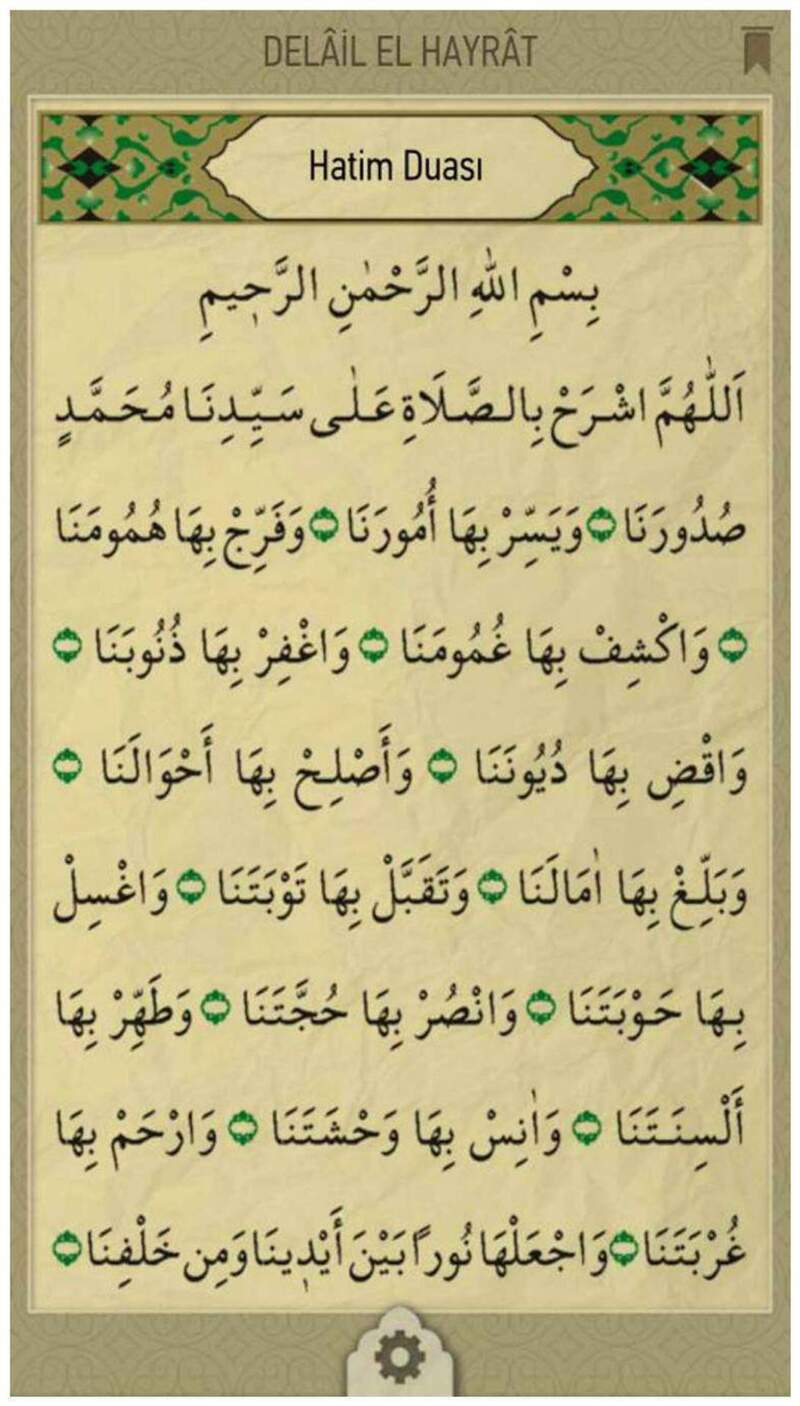 DELÂİL EL HAYRÂT
Hatim Duası
بِسْمِ اللهِ الرَّحْمٰنِ الرَّحٖيمِ
اَللّٰهُمَّ اشْرَحْ بِالصَّلَاةِ عَلٰى سَيِّدِنَا مُحَمَّدٍ
صُدُورَنَا ۝ وَيَسِّرْ بِهَا أُمُورَنَا ۝ وَفَرِّجْ بِهَا هُمُومَنَا
۝ وَاكْشِفْ بِهَا غُمُومَنَا ۝ وَاغْفِرْ بِهَا ذُنُوبَنَا ۝
وَاقْضِ بِهَا دُيُونَنَا ۝ وَأَصْلِحْ بِهَا أَحْوَالَنَا ۝
وَبَلِّغْ بِهَا اٰمَالَنَا ۝ وَتَقَبَّلْ بِهَا تَوْبَتَنَا ۝ وَاغْسِلْ
بِهَا حَوْبَتَنَا ۝ وَانْصُرْ بِهَا حُجَّتَنَا ۝ وَطَهِّرْ بِهَا
أَلْسِنَتَنَا ۝ وَاٰنِسْ بِهَا وَحْشَتَنَا ۝ وَارْحَمْ بِهَا
غُرْبَتَنَا ۝ وَاجْعَلْهَا نُورًا بَيْنَ أَيْدٖينَا وَمِن خَلْفِنَا ۝